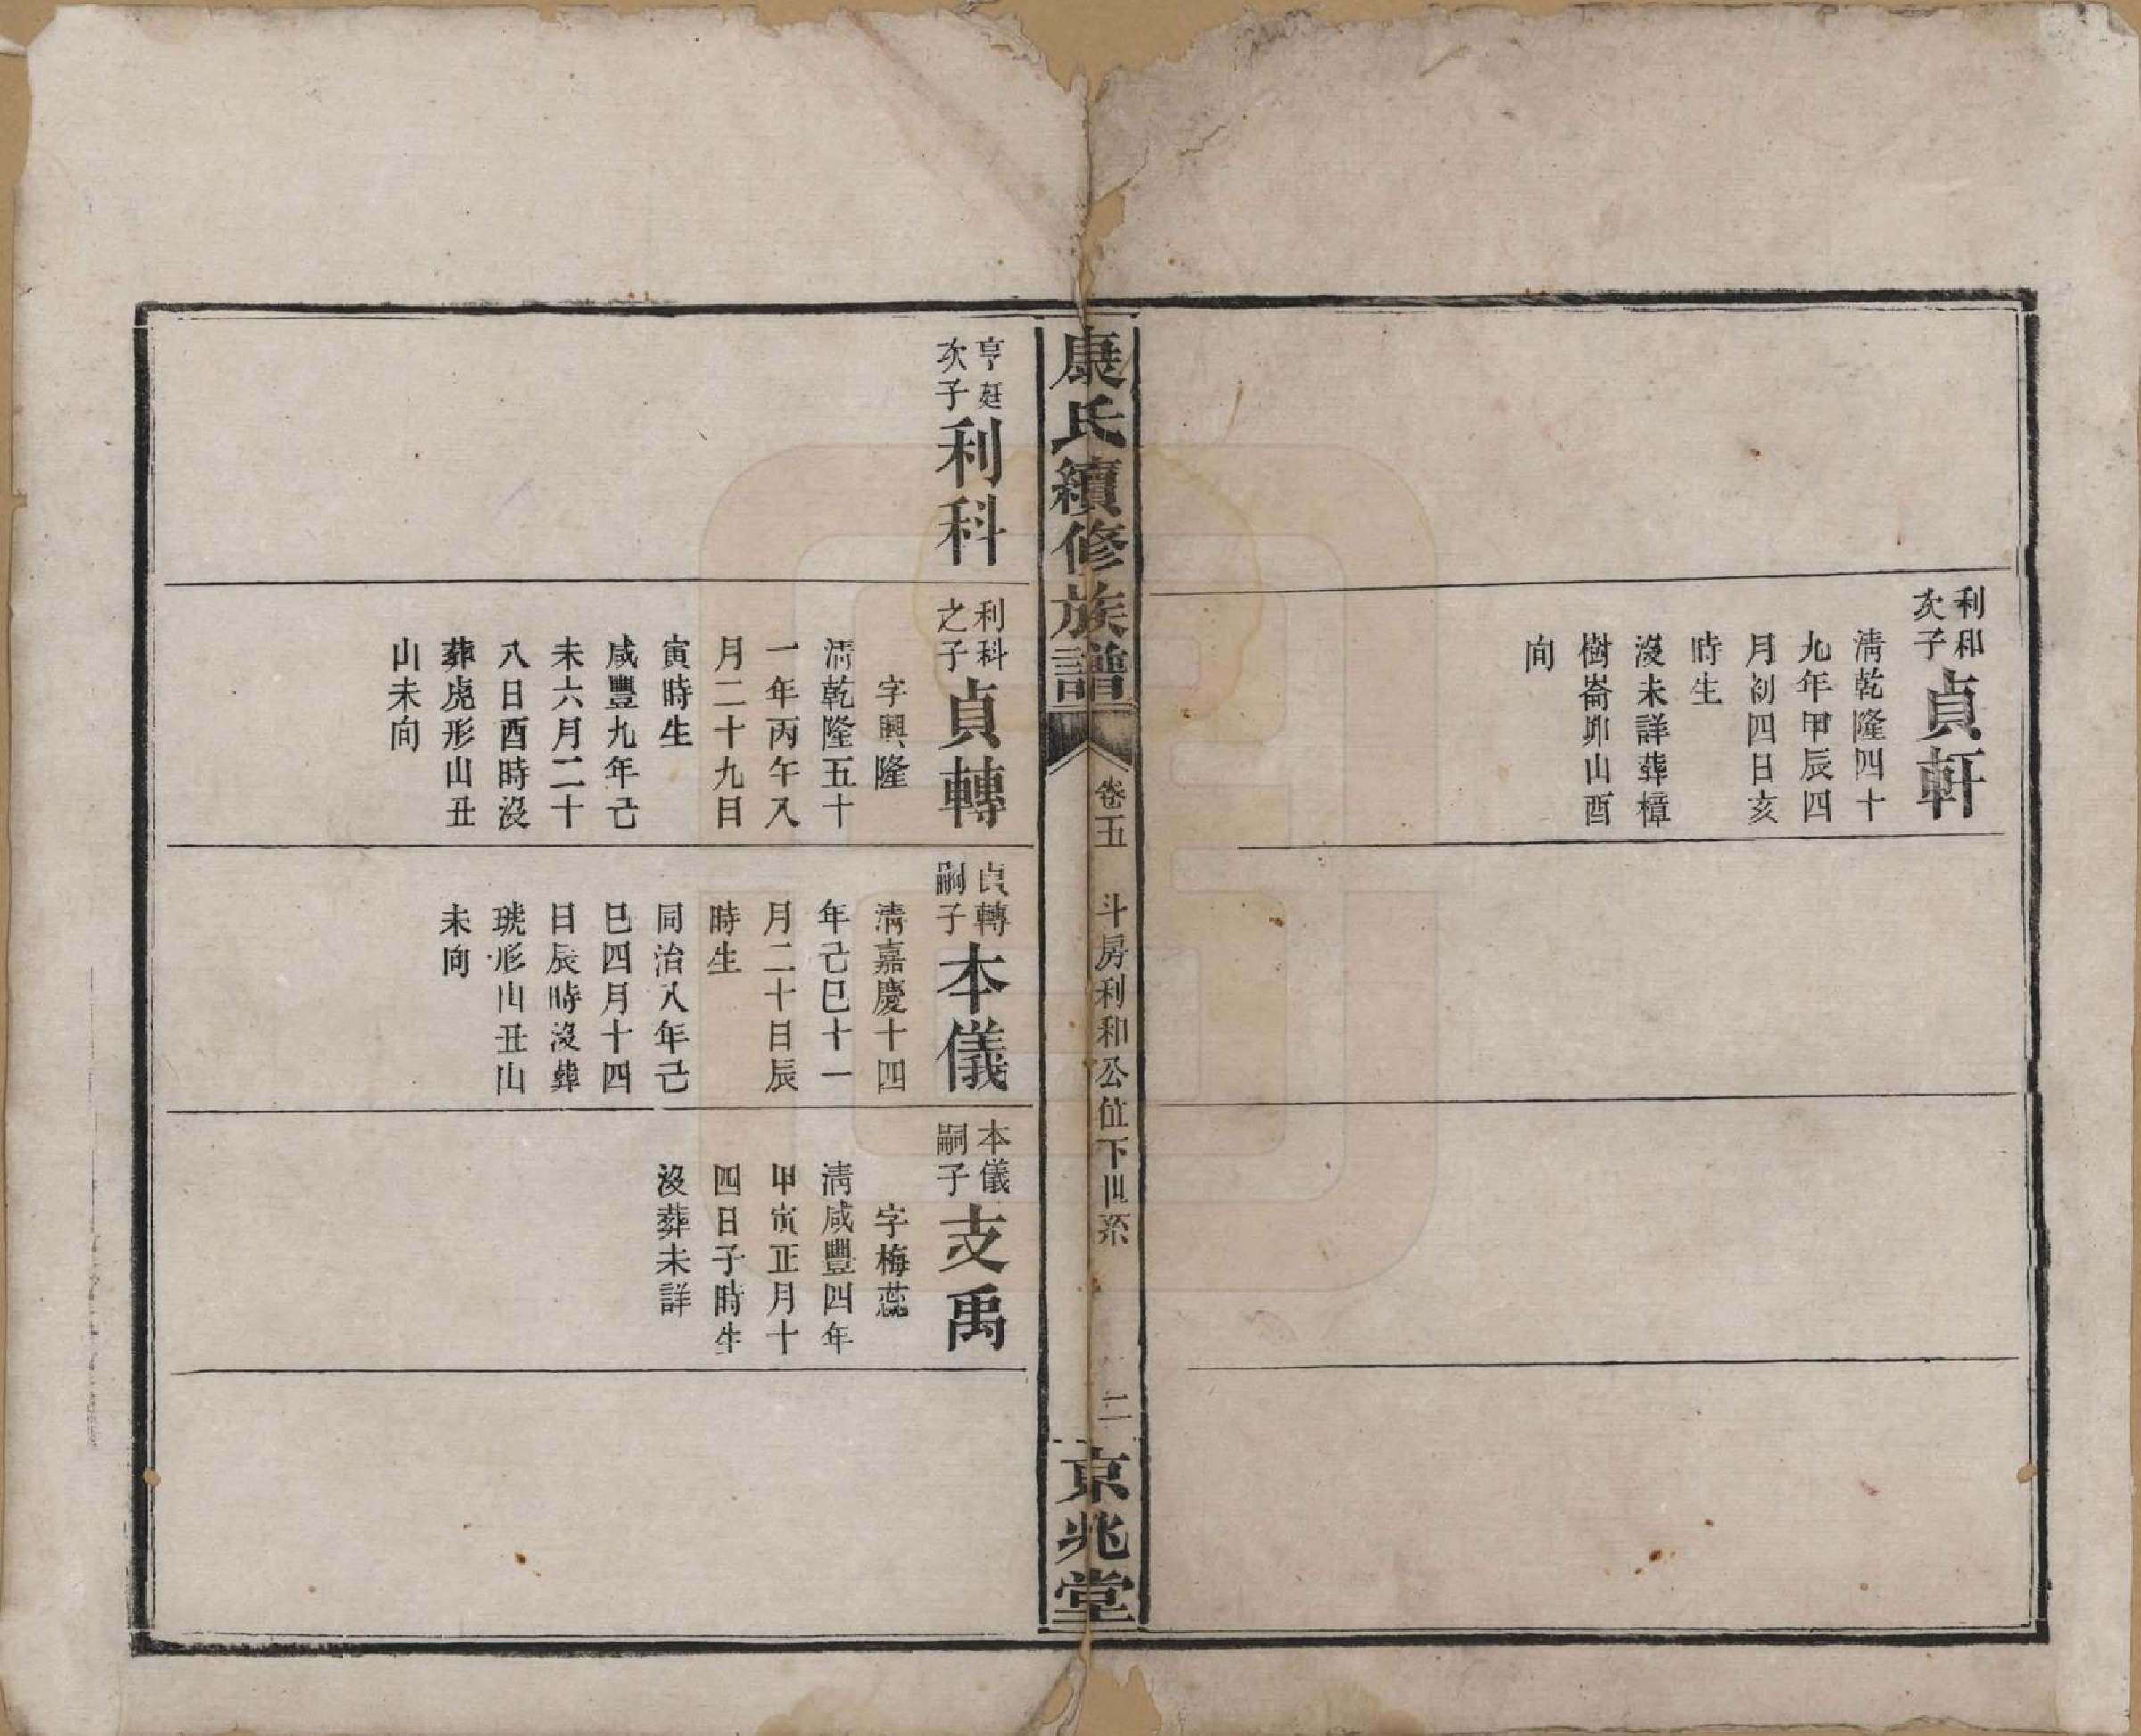 利和
次子
貞軒
淸乾隆四十
九年甲辰四
月初四日亥
時生
沒未詳葬樟
樹崙卯山酉
向
康氏續修族譜
卷五
斗房利和公位下世系
二
京兆堂
亨庭
次子
利科
利科
之子
貞轉
字興隆
淸乾隆五十
一年丙午八
月二十九日
寅時生
咸豐九年己
未六月二十
八日酉時沒
葬虎形山丑
山未向
貞轉
嗣子
本儀
淸嘉慶十四
年己巳十一
月二十日辰
時生
同治八年己
巳四月十四
日辰時沒葬
琥形山丑山
未向
本儀
嗣子
支禹
字梅蕊
淸咸豐四年
甲寅正月十
四日子時生
沒葬未詳